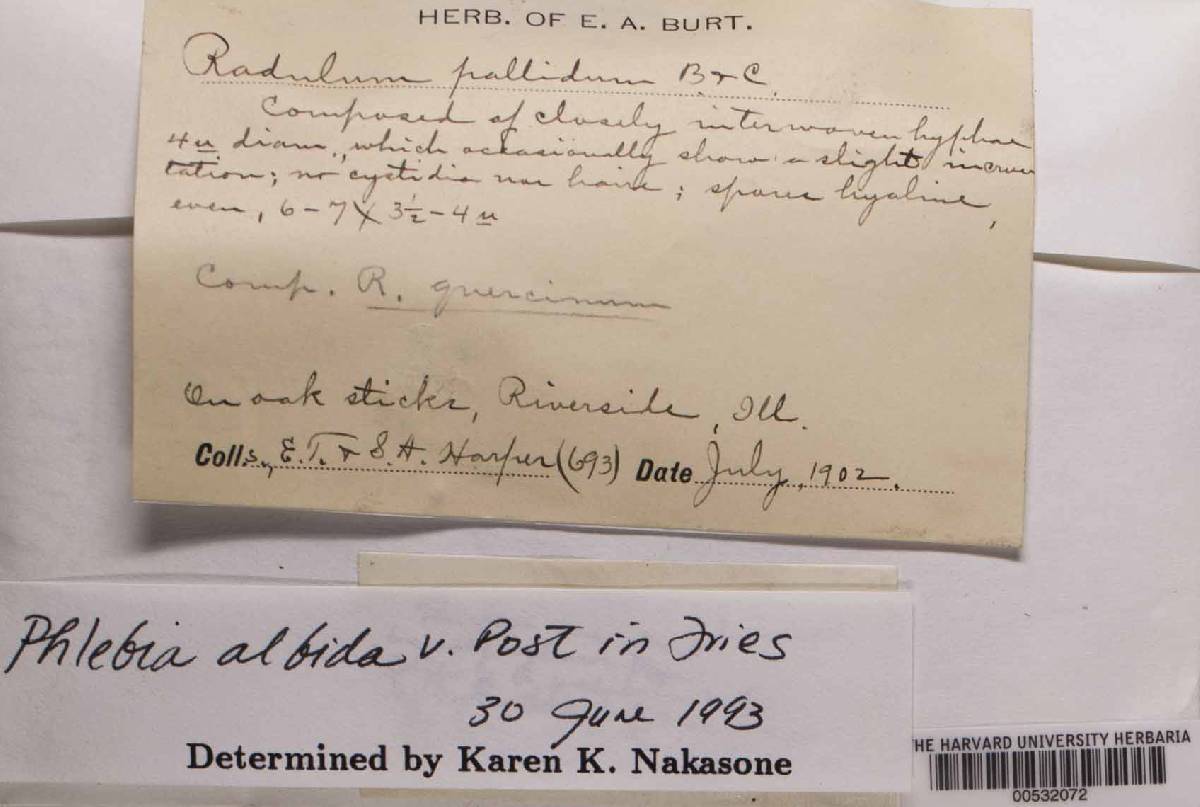 HERB. OF E. A. BURT.
Radulum pallidum B & C.
Composed of closely interwoven hyphae
4 u diam., which occasionally show a slight incrus
tation; no cystidia nor hairs; spores hyaline,
even, 6-7 X 3½-4 u
Comp. R. quercinum
On oak sticks, Riverside, Ill.
Colls., E. T. & S. A. Harper (693) Date July, 1902.
Phlebia albida v. Post in Fries
30 June 1993
Determined by Karen K. Nakasone
HE HARVARD UNIVERSITY HERBARIA
00532072